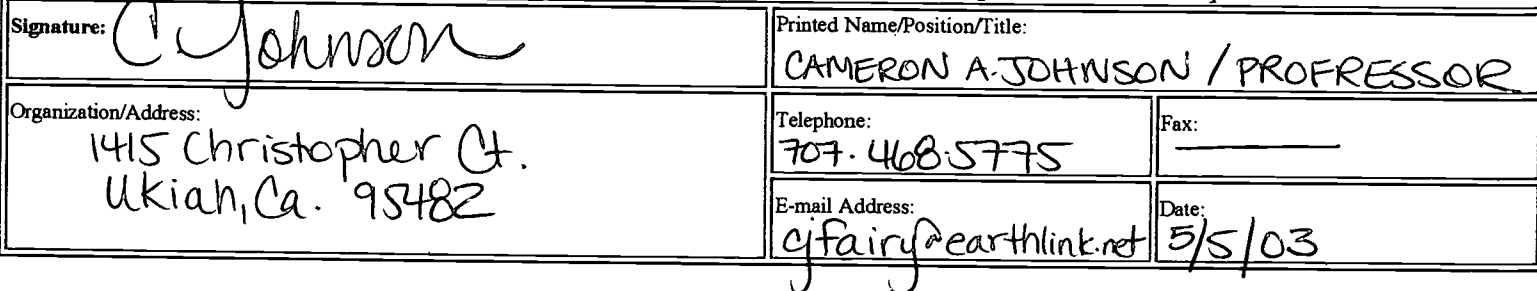 Signature: C Johnson
Printed Name/Position/Title:
CAMERON A. JOHNSON / PROFRESSOR
Organization/Address:
1415 Christopher Ct.
Ukiah, Ca. 95482
Telephone:
707.468.5775
Fax:
E-mail Address:
cjfairy@earthlink.net
Date:
5/5/03